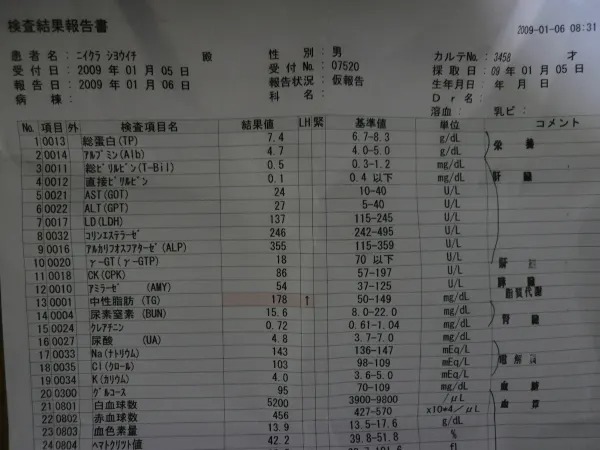 検査結果報告書
2009-01-06 08:31
患者名：ニイクラ シヨウイチ 殿 性別：男 カルテNo. 3458 才
受付日：2009年01月05日 受付No.：07520 採取日：09年01月05日
報告日：2009年01月06日 報告状況：仮報告 生年月日： 年 月 日
病棟： 科名： Dr名：
溶血： 乳ビ：
No. 項目 外 検査項目名 結果値 LH 緊 基準値 単位 コメント
1 0013 総蛋白(TP) 7.4 6.7-8.3 g/dL 栄養
2 0014 アルブミン(Alb) 4.7 4.0-5.0 g/dL
3 0011 総ビリルビン(T-Bil) 0.5 0.3-1.2 mg/dL 肝臓
4 0012 直接ビリルビン 0.1 0.4 以下 mg/dL
5 0021 AST(GOT) 24 10-40 U/L
6 0022 ALT(GPT) 27 5-40 U/L
7 0017 LD(LDH) 137 115-245 U/L
8 0032 コリンエステラーゼ 246 242-495 U/L
9 0016 アルカリフオスフアターゼ(ALP) 355 115-359 U/L
10 0020 γ-GT(γ-GTP) 18 70 以下 U/L
11 0018 CK(CPK) 86 57-197 U/L
12 0010 アミラーゼ (AMY) 54 37-125 U/L 膵臓
13 0001 中性脂肪 (TG) 178 ↑ 50-149 mg/dL 脂質代謝
14 0004 尿素窒素 (BUN) 15.6 8.0-22.0 mg/dL 腎臓
15 0024 クレアチニン 0.72 0.61-1.04 mg/dL
16 0027 尿酸 (UA) 4.8 3.7-7.0 mg/dL
17 0033 Na(ナトリウム) 143 136-147 mEq/L 電解質
18 0035 Cl(クロール) 103 98-109 mEq/L
19 0034 K(カリウム) 4.0 3.6-5.0 mEq/L
20 0300 グルコース 95 70-109 mg/dL 血糖
21 0801 白血球数 5200 3900-9800 /μL 血算
22 0802 赤血球数 456 427-570 x10*4/μL
23 0803 血色素量 13.9 13.5-17.6 g/dL
24 0804 ヘマトクリット値 42.2 39.8-51.8 %
fl